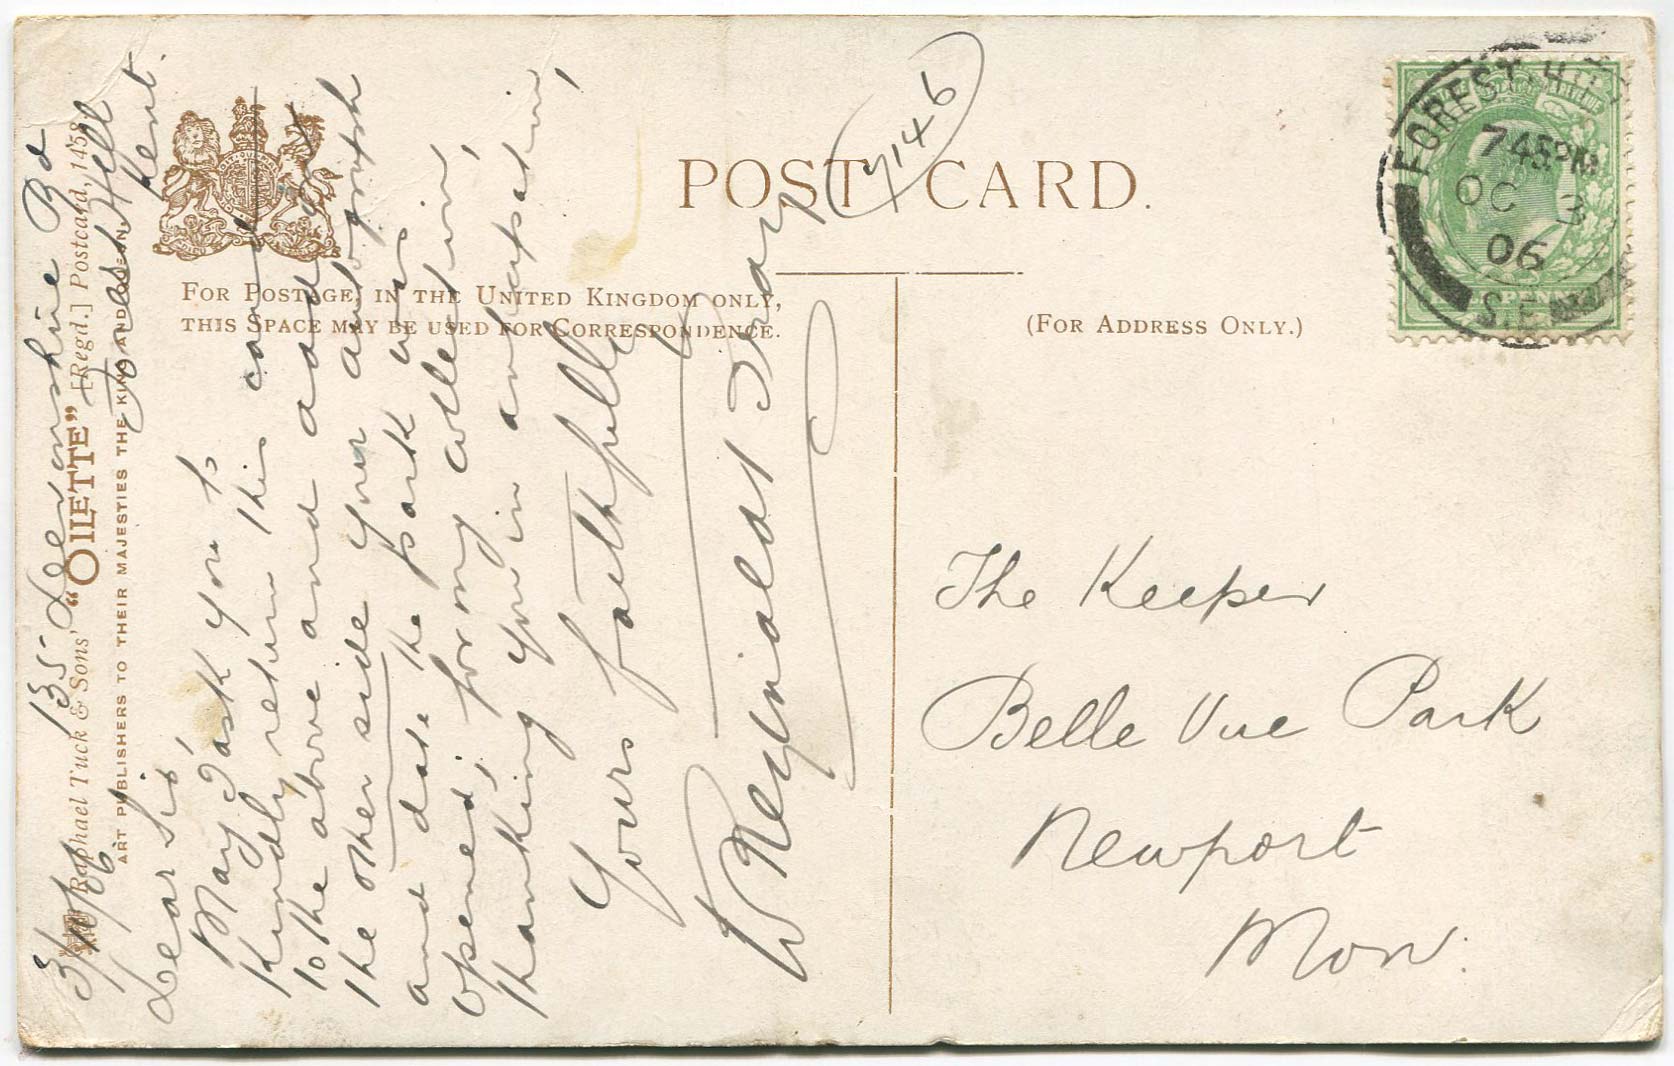 POST CARD.
7146
FOR POSTAGE, IN THE UNITED KINGDOM ONLY,
THIS SPACE MAY BE USED FOR CORRESPONDENCE.
(FOR ADDRESS ONLY.)
FOREST HILL
7 45 PM
OC 3
06
S.E.
Raphael Tuck & Sons' "OILETTE" [Regd.] Postcard, 1458
ART PUBLISHERS TO THEIR MAJESTIES THE KING AND QUEEN.
135 Devonshire Rd
Forest Hill
Kent.
3/10/06
Dear Sir,
May I ask you to
kindly return this card
to the above and add your
the other side your autograph
and date the park was
opened, for my collection,
thanking you in anticipation,
Yours faithfully
W Reginald Bray
The Keeper
Belle Vue Park
Newport
Mon.